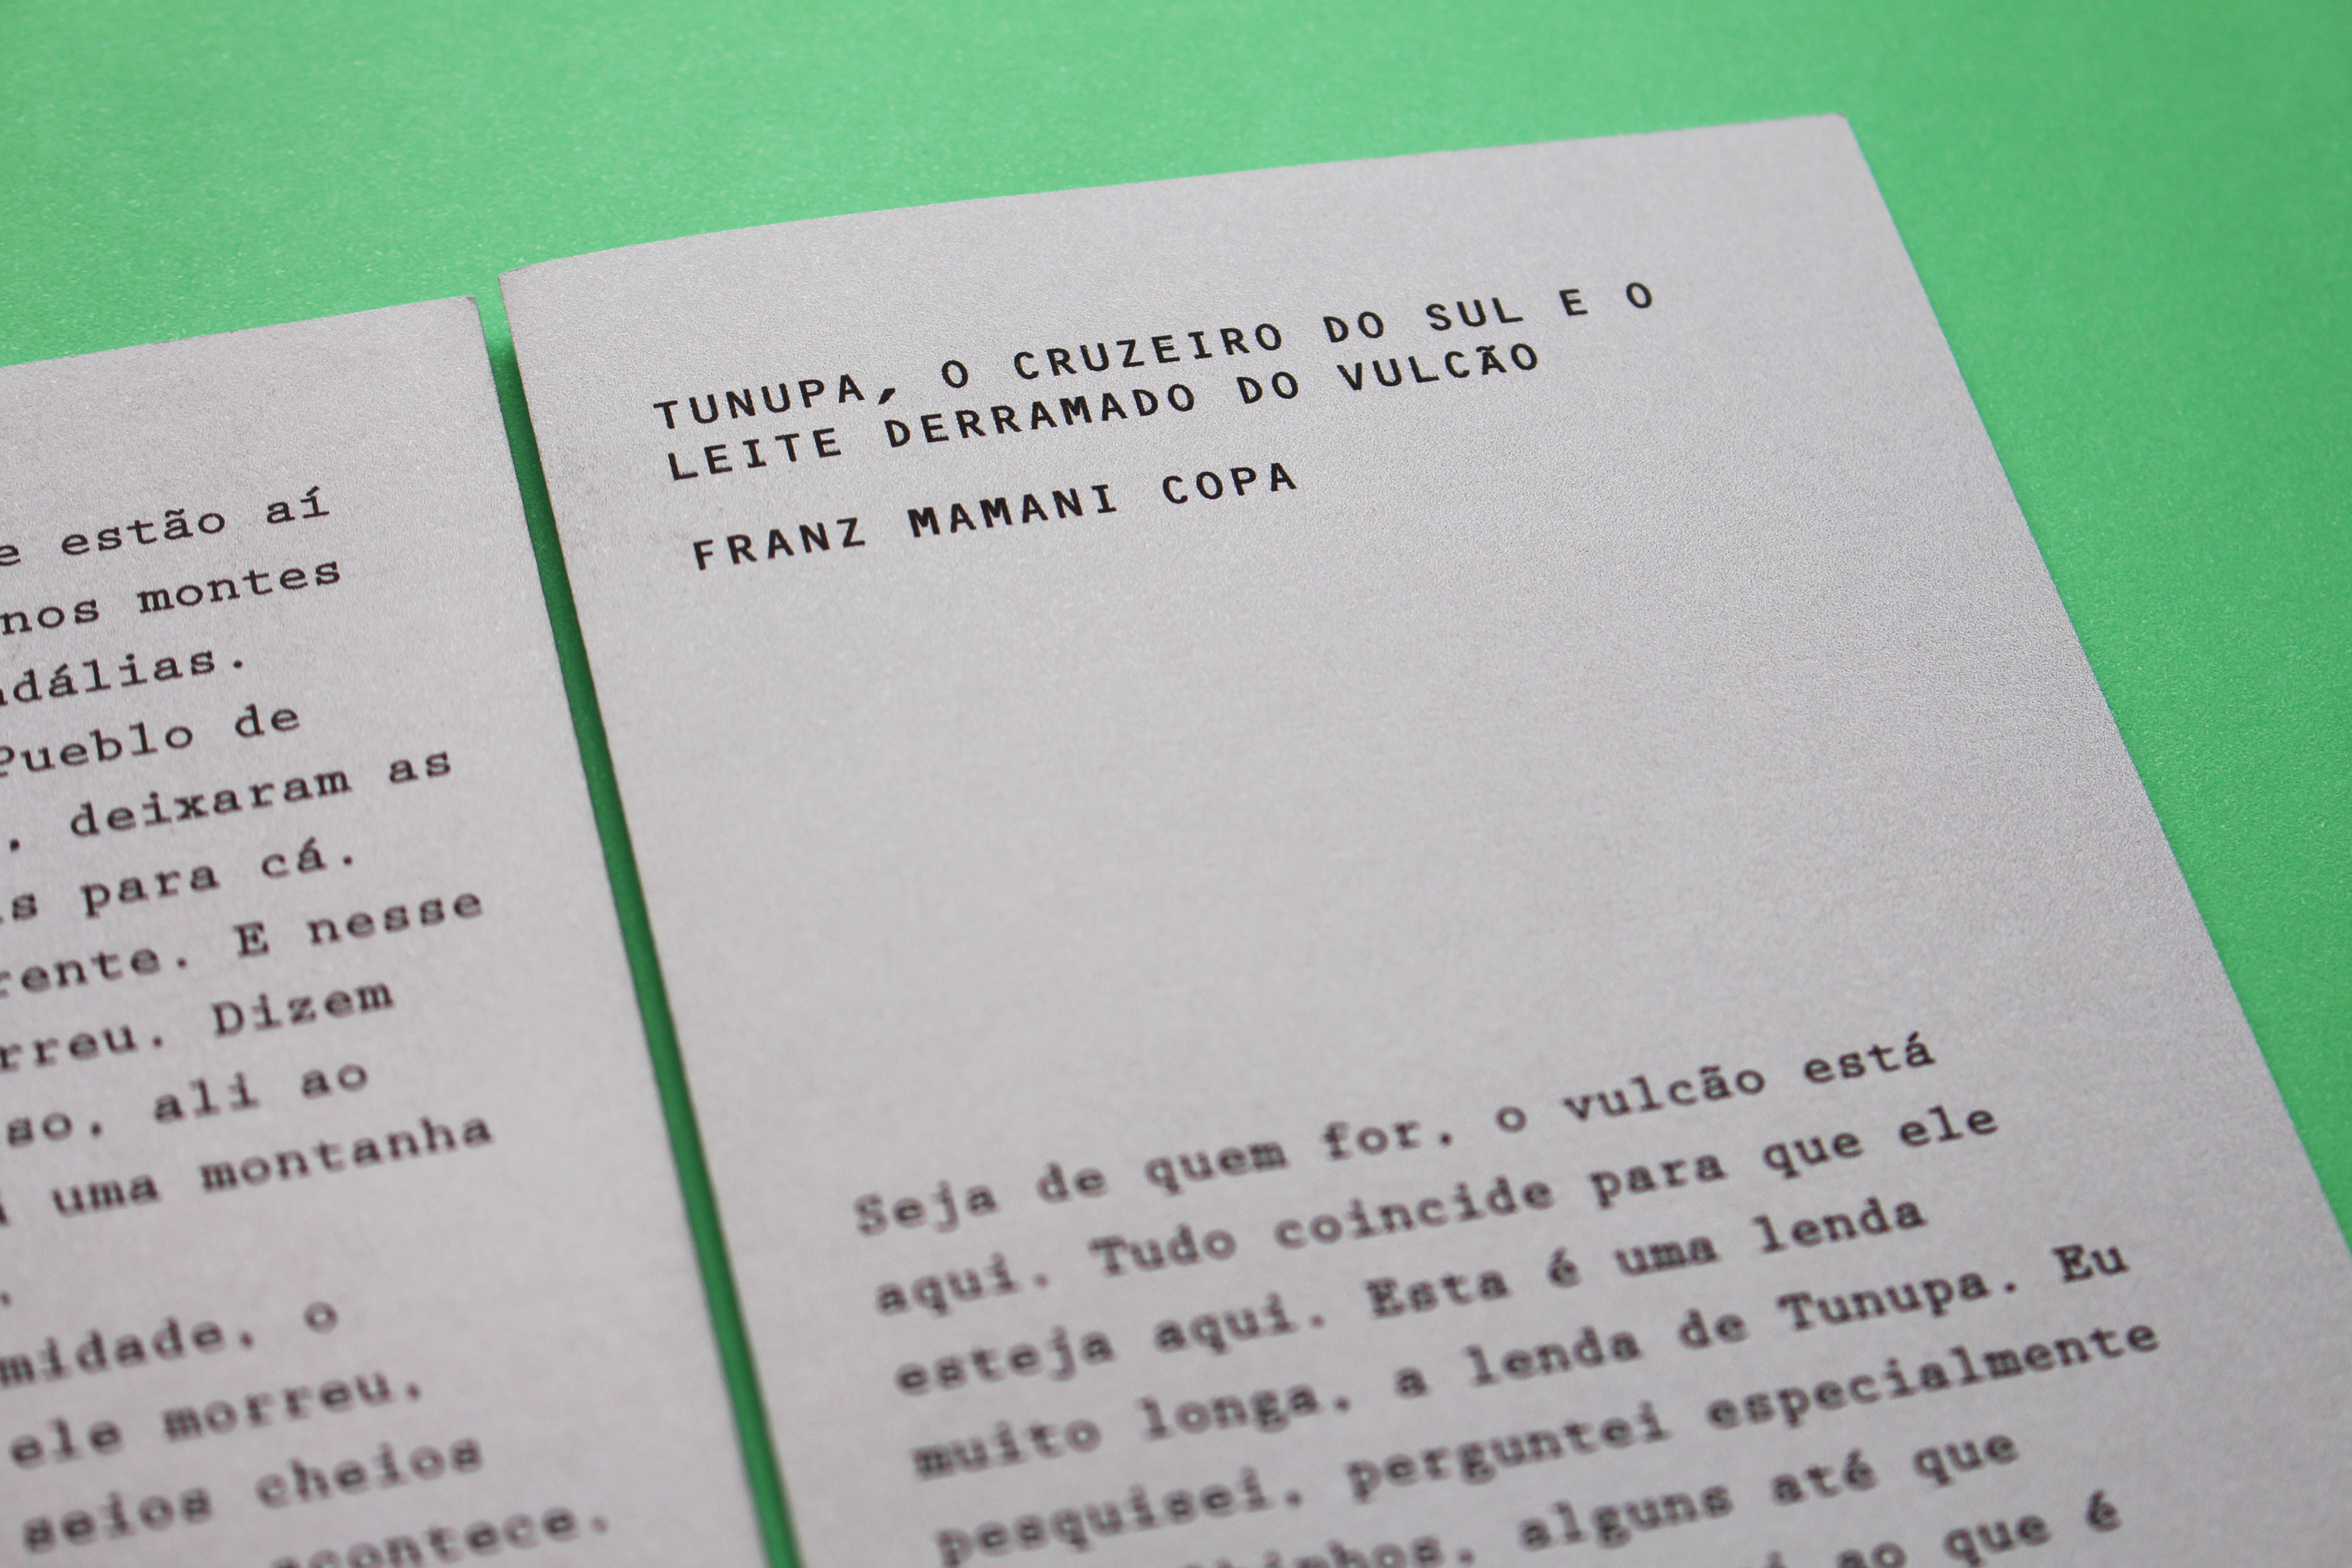 e estão aí
nos montes
dálias.
Pueblo de
, deixaram as
s para cá.
rente. E nesse
rreu. Dizem
so, ali ao
uma montanha
.
midade, o
ele morreu,
seios cheios
acontece.
TUNUPA, O CRUZEIRO DO SUL E O
LEITE DERRAMADO DO VULCÃO
FRANZ MAMANI COPA
Seja de quem for, o vulcão está
aqui. Tudo coincide para que ele
esteja aqui. Esta é uma lenda
muito longa, a lenda de Tunupa. Eu
pesquisei, perguntei especialmente
alguns até que
ao que é